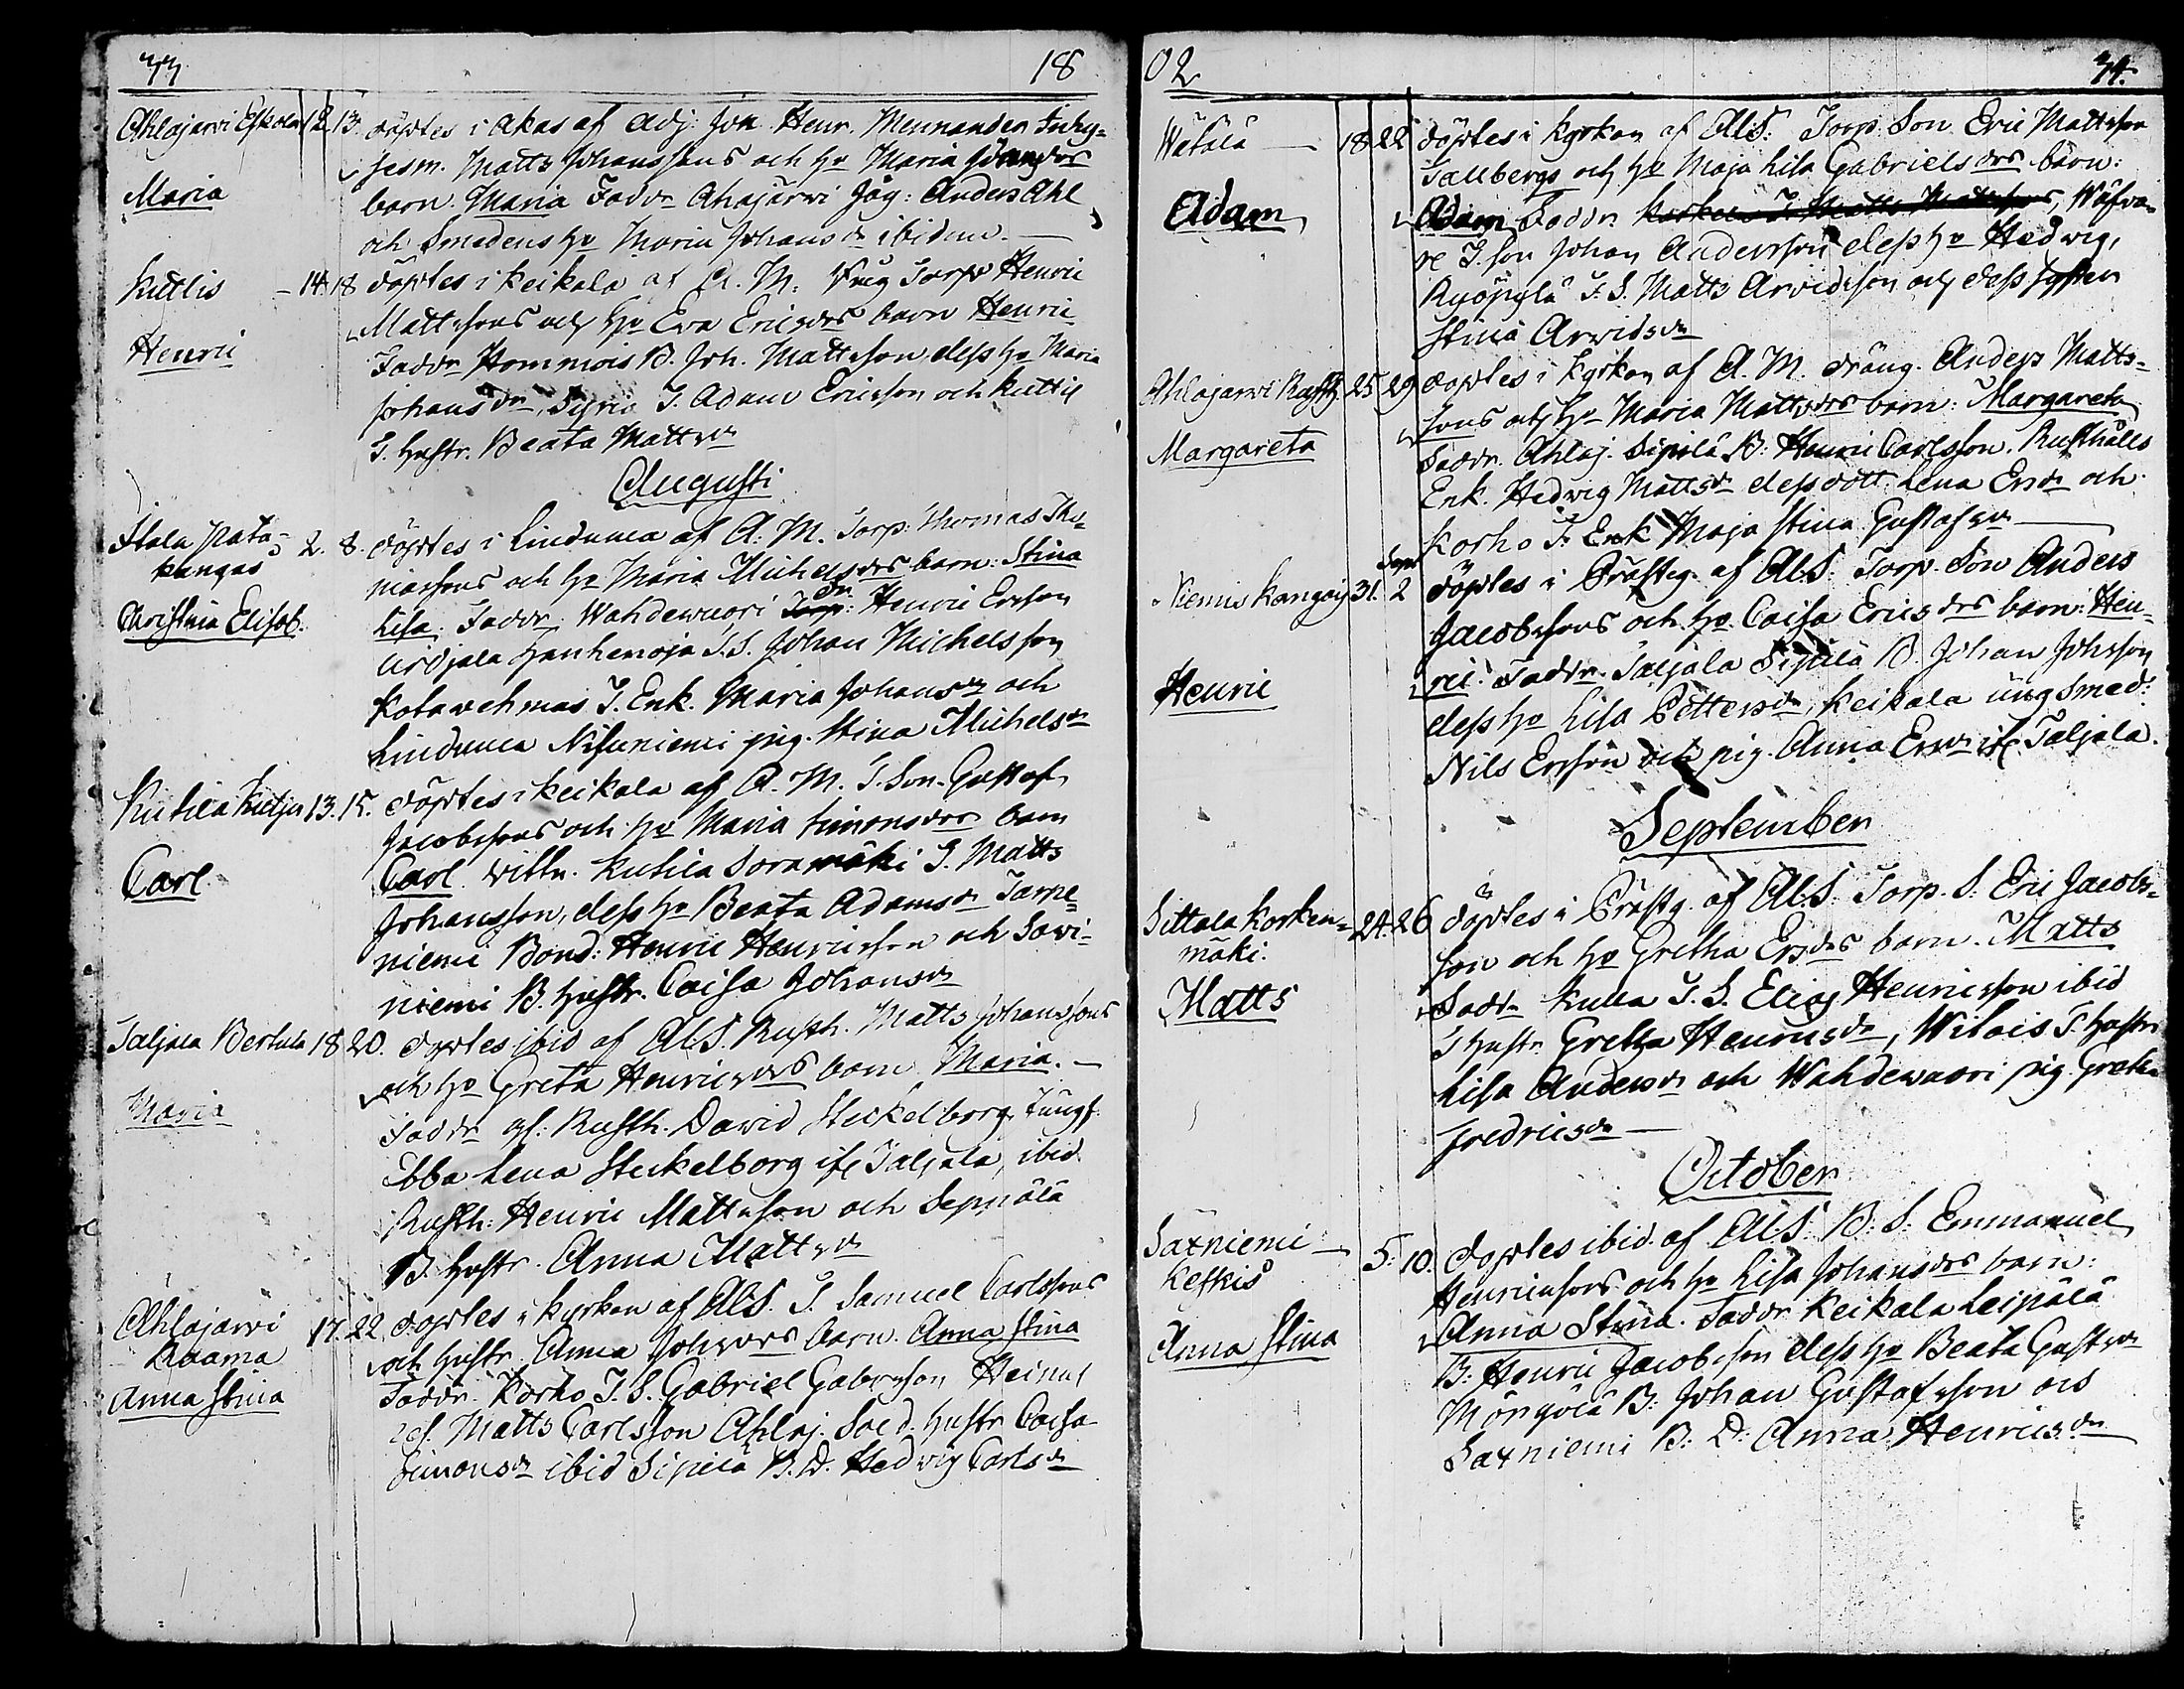 33 18
Ahlajarvi Eskola 12 13. döptes i Akas af Adj: Joh. Henr. Mennander Inhy-
sesm. Matts Johanssons och h:o Maria
Maria barn. Maria Faddr Ahlajärwi Jäg: Anders Ahl
och Smedens h:o Maria Johansdr ibidem.
Kutlis 14. 18 döptes i Keikala af A. M. Torp Henric
Mattssons och h:o Eva Ericsdrs barn Henric
Henric Faddr Hommois B. Joh. Mattsson dess h:o Maria
Johansdr, T. Adam Ericsson och Kuttis
T. hustr. Beata Mattsdr
Augusti
Itala Pata- 2. 8. döptes i Lindunea af A. M. Torp: Thomas Tho-
kangas massons och h:o Maria Michelsdrs barn: Stina
Christina Elisab. Lisa. Faddr Wahdewuori Henric Ersson
Urdjala Hanhenoja T.S. Johan Michelsson
Kotawehmas T. Enk. Maria Johansdr och
Lindunea Nisuniemi pig. Stina Michelsdr
Kutila 13. 15. döptes i Keikala af A. M. T. Son Gustaf
Jacobssons och h:o Maria Simonsdrs barn
Carl Carl. Wittn. Kutila Soramäki T. Matts
Johansson, dess h:o Beata Adamsdr Jarne-
niemi Bond: Henric Henricsson och Sawi-
niemi B. hustr. Caisa Johansdr
Taljala Bertula 18 20. döptes ibid af Al.S. Rusth. Matts Johanssons
och h:o Greta Henricsdrs barn Maria.
Maria Faddr gl: Rusth. David Steckelborg, Jungf.
Ebba Lena Steckelborg ifr Taljala, ibid
Rusth: Henric Mattsson och Seppälä
B. hustr. Anna Mattsdr
Ahlajarwi 17. 22 döptes i kyrkan af Al.S. T. Samuel Carlssons
Raama och hustr. Anna Johsdrs barn. Anna Stina
Anna Stina Faddr. Korho T.S. Gabriel Gabrsson
Matts Carlsson Ahlaj. Sold: hustr Caisa
Simonsdr ibid Sipilä B.D. Hedwig Carlsdr
02 34.
Wätälä 18 22 döptes i kyrkan af Al.S: Torp: Son Eric Mattsson
Tallbergs och h:o Maja Lisa Gabrielsdrs barn:
Adam Adam Faddr.
T. son Johan Andersson dess h:o Hedwig,
Ryöpylä T.S. Matts Arvidsson och dess syster
Stina Arwidsdr
Ahlajarwi Rusth. 25 29 döptes i kyrkan af A. M. dräng. Anders Matts-
sons och h:o Maria Mattsdrs barn: Margareta
Margareta Faddr. Ahlaj. Sipilä B: Henric Carlsson. Rusthålls
Enk. Hedwig Mattsdr dess dott Lena Ersdr och
Korho T. Enk Maja Stina Gustafsdr
Sept
Niemis Kangas 31. 2 döptes i Prästg. af Al.S: Torp. Son Anders
Jacobssons och h:o Caisa Ericsdrs barn: Hen-
Henric ric: Faddr. Taljala Sipilä B. Johan Johsson
dess h:o Lisa Pettersdr, Keikala ung Smed:
Nils Ersson och pig. Anna Ersdr ifr Taljala.
September
Sittala Korken- 24. 26 döptes i Prästg. af Al.S. Torp. S. Eric Jacobs-
mäki. son och h:o Gretha Ersdrs barn. Matts
Matts Faddr Kulla T.S. Elias Henricsson ibid
T hustr Gretha Henricsdr, Wilois T. hustr
Lisa Andersdr och Wahdewuori pig. Gretha
Fredricsdr
October
Saxniemi 5. 10. döptes ibid. af Al.S: B: S: Emmanuel
Keskis Henricssons och h:o Lisa Johansdrs barn:
Anna Stina Anna Stina. Faddr Keikala Leipälä
B: Henric Jacobsson dess h:o Beata Gustsdr
B: Johan Gustafsson och
Saxniemi B: D: Anna Henricsdr